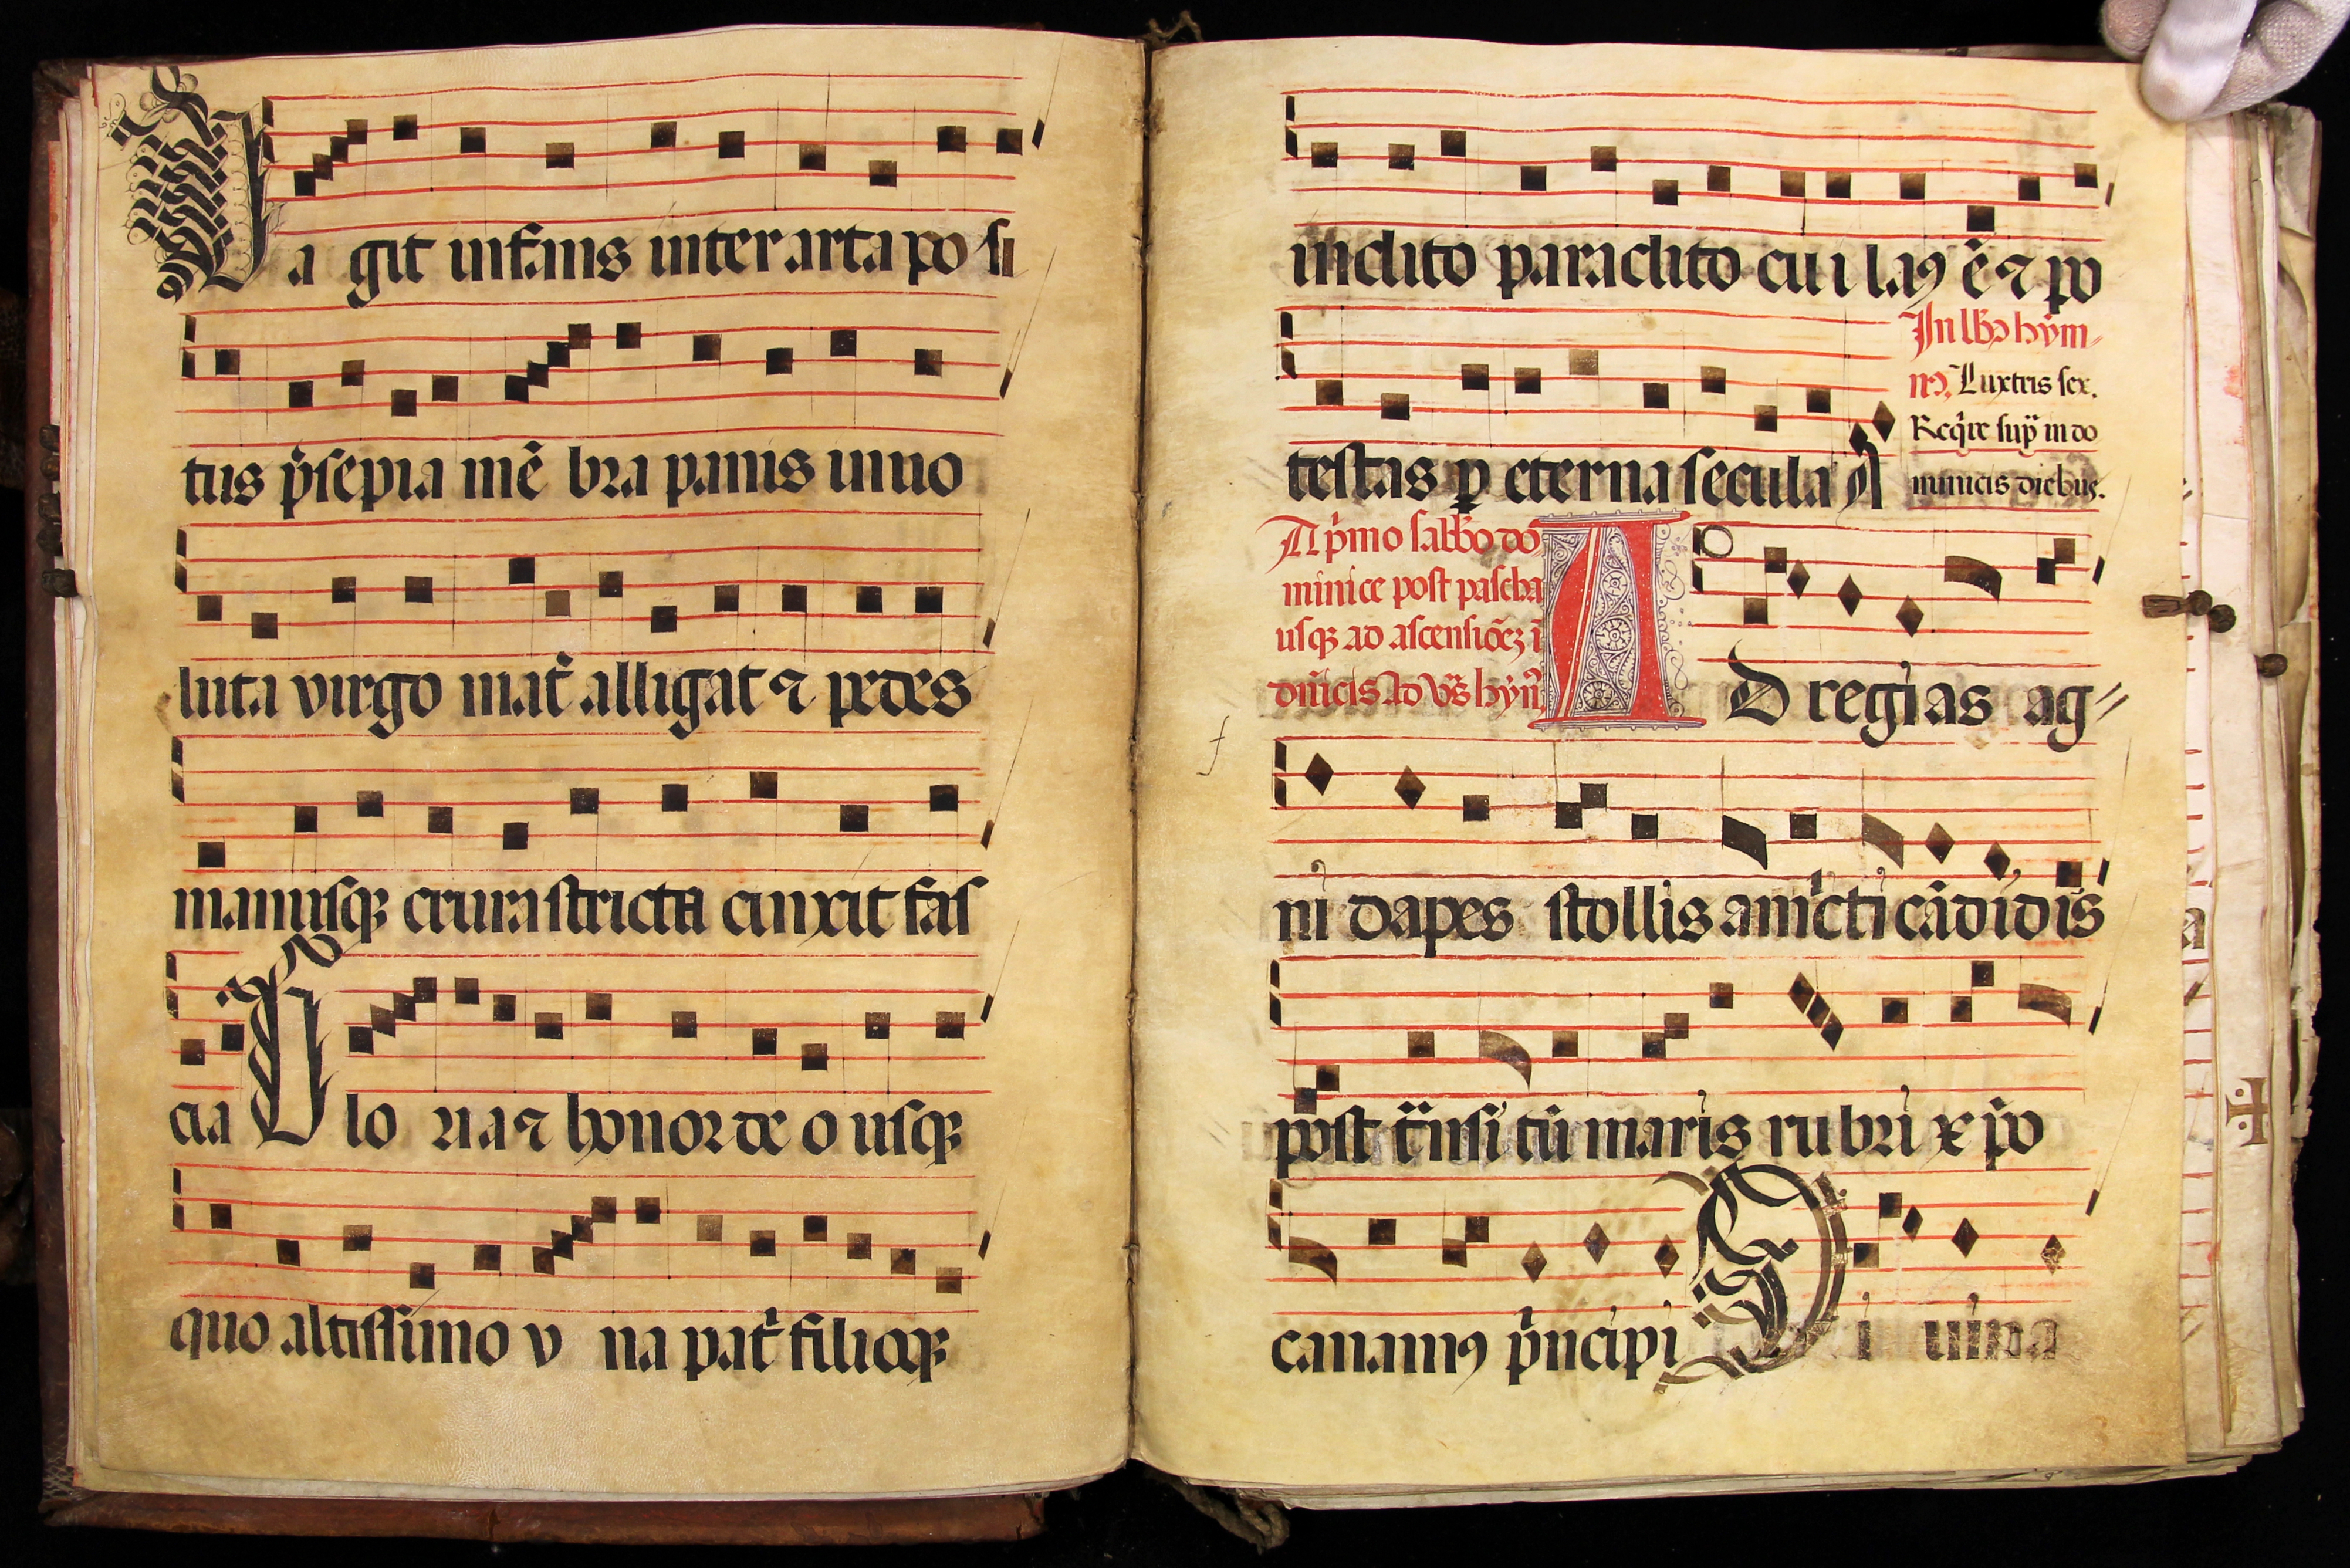 Va git infans inter arta po si
tus p̄sepia mē bra pannis inuo
luta virgo mat̄ alligat ⁊ pedes
manusqꝫ crura stricta cinxit fas
cia Glo ria ⁊ honor deo usqꝫ
quo altissimo v na pat̄ filioqꝫ
inclito paraclito cui laꝰ ē ⁊ po
testas ꝑ eterna secula A
In lb̄o hym-
nꝰ. Lux tris sex.
Req̄re sup̄ in do
minicis diebus.
A p̄mo sabb̄o do
minice post pascha
usqꝫ ad ascensiōeꝫ ī
dn̄icis Ad Vs̄ hyn̄.
AD regias ag//
ni dapes stollis amicti cādidis
post t̄nsitū maris rubri xp̄o
canamꝰ p̄ncipi Diuina